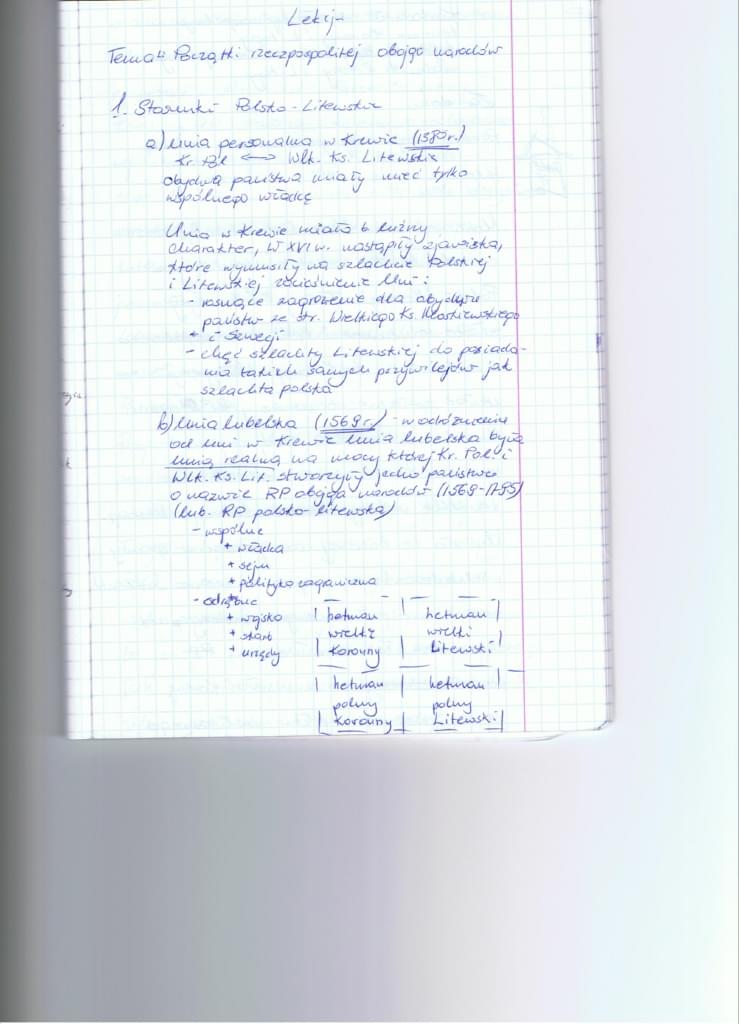 Lekcja
Temat: Początki rzeczpospolitej obojga narodów
1. Stosunki Polsko-Litewskie
a) Unia personalna w Krewie (1385r.)
Kr. Pol. ↔ Wlk. Ks. Litewskie
obydwa państwa miały mieć tylko
wspólnego władcę
Unia w Krewie miała b. luźny
charakter, W XVI w. nastąpiły zjawiska,
które wymusiły na szlachcie Polskiej
i Litewskiej zacieśnienie Unii:
- rosnące zagrożenie dla obydwu
państw ze str. Wielkiego Ks. Moskiewskiego
i Szwecji
- chęć szlachty Litewskiej do posiada-
nia takich samych przywilejów jak
szlachta polska
b) Unia lubelska (1569r.) - w odróżnieniu
od unii w Krewie Unia lubelska była
unią realną na mocy której Kr. Pol. i
Wlk. Ks. Lit. stworzyły jedno państwo
o nazwie RP obojga narodów (1569-1795)
(lub. RP polsko-litewska)
- wspólne
+ władca
+ sejm
+ polityka zagraniczna
- odrębne
+ wojsko
+ skarb
+ urzędy
hetman wielki Koronny
hetman wielki Litewski
hetman polny Koronny
hetman polny Litewski